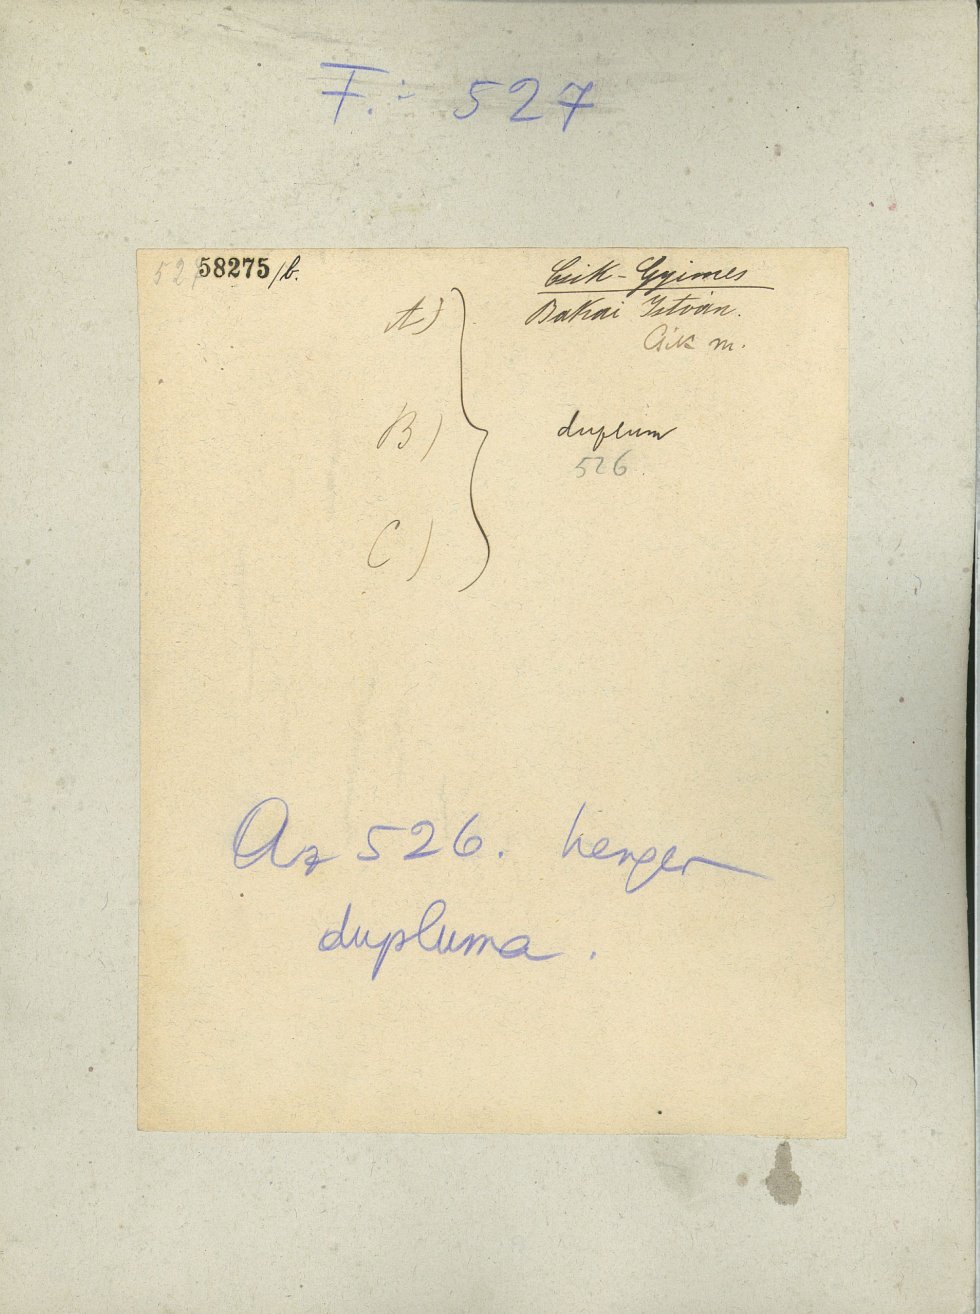 F. : 527
527 58275/b.
Csik-Gyimes
Bakai István.
Csík m.
A)
B)
C)
duplum
526.
Az 526. henger
dupluma.